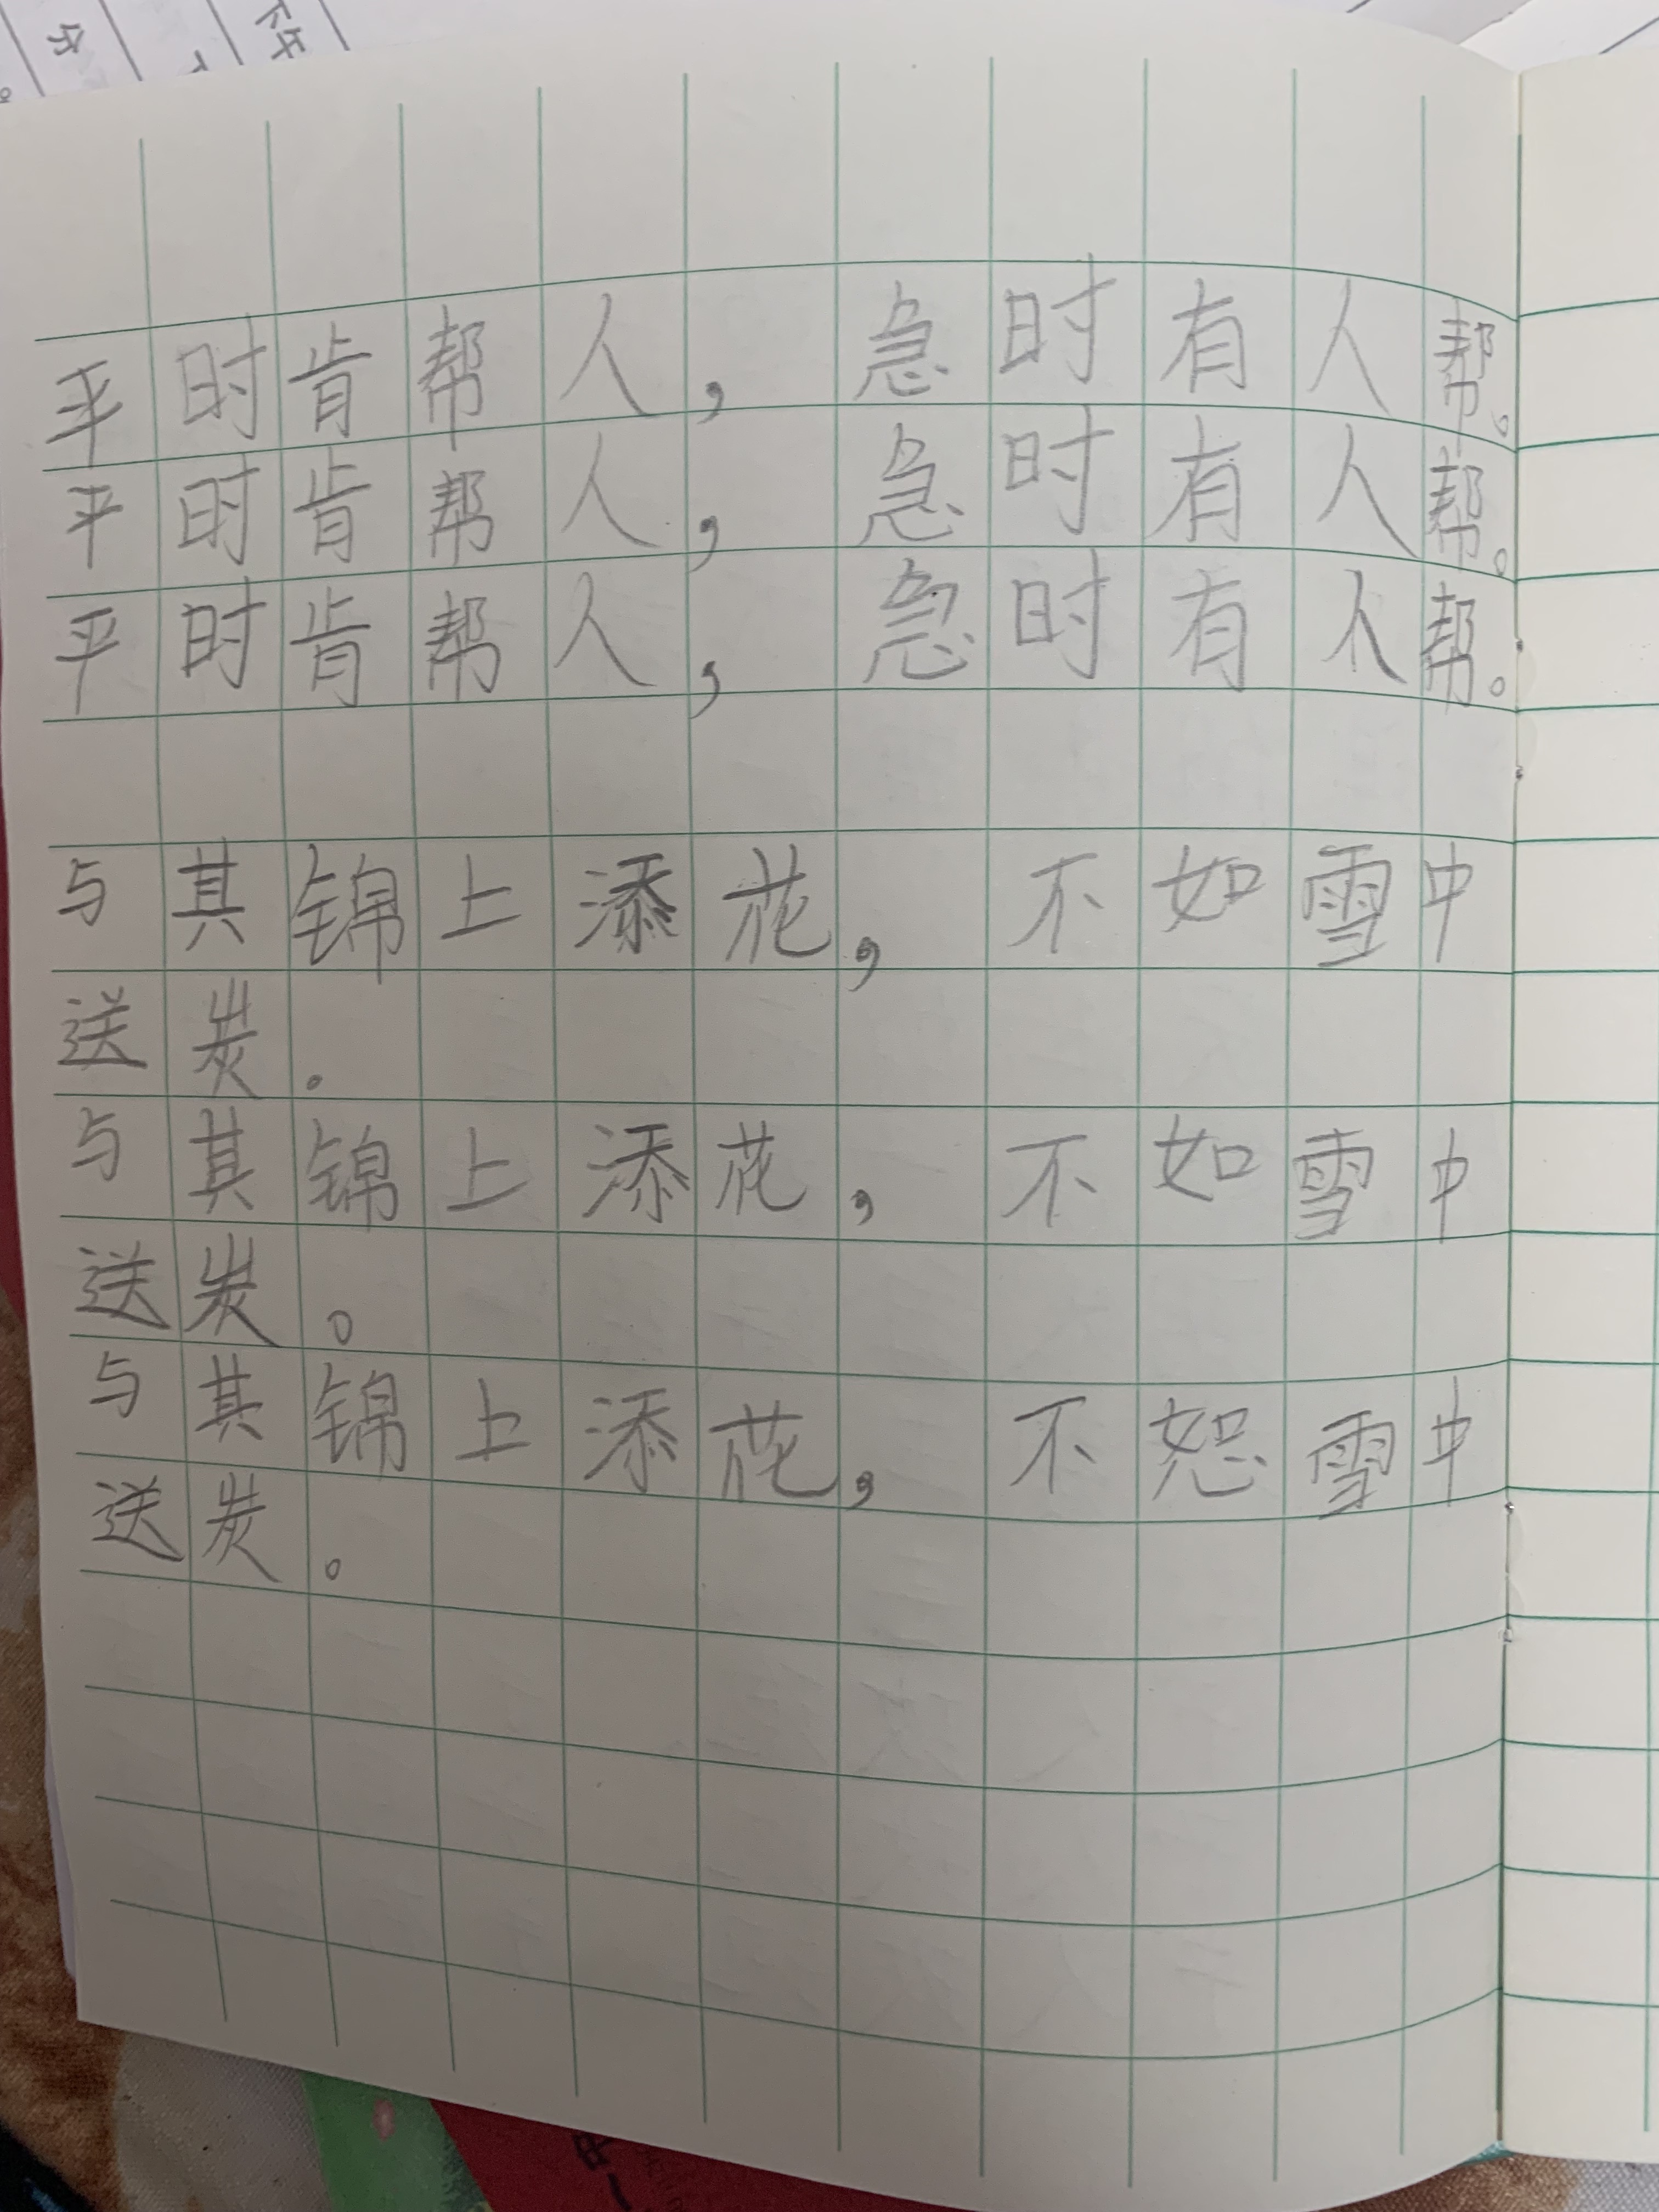 平时肯帮人，急时有人帮。
平时肯帮人，急时有人帮。
平时肯帮人，急时有人帮。
与其锦上添花，不如雪中
送炭。
与其锦上添花，不如雪中
送炭。
与其锦上添花，不恕雪中
送炭。